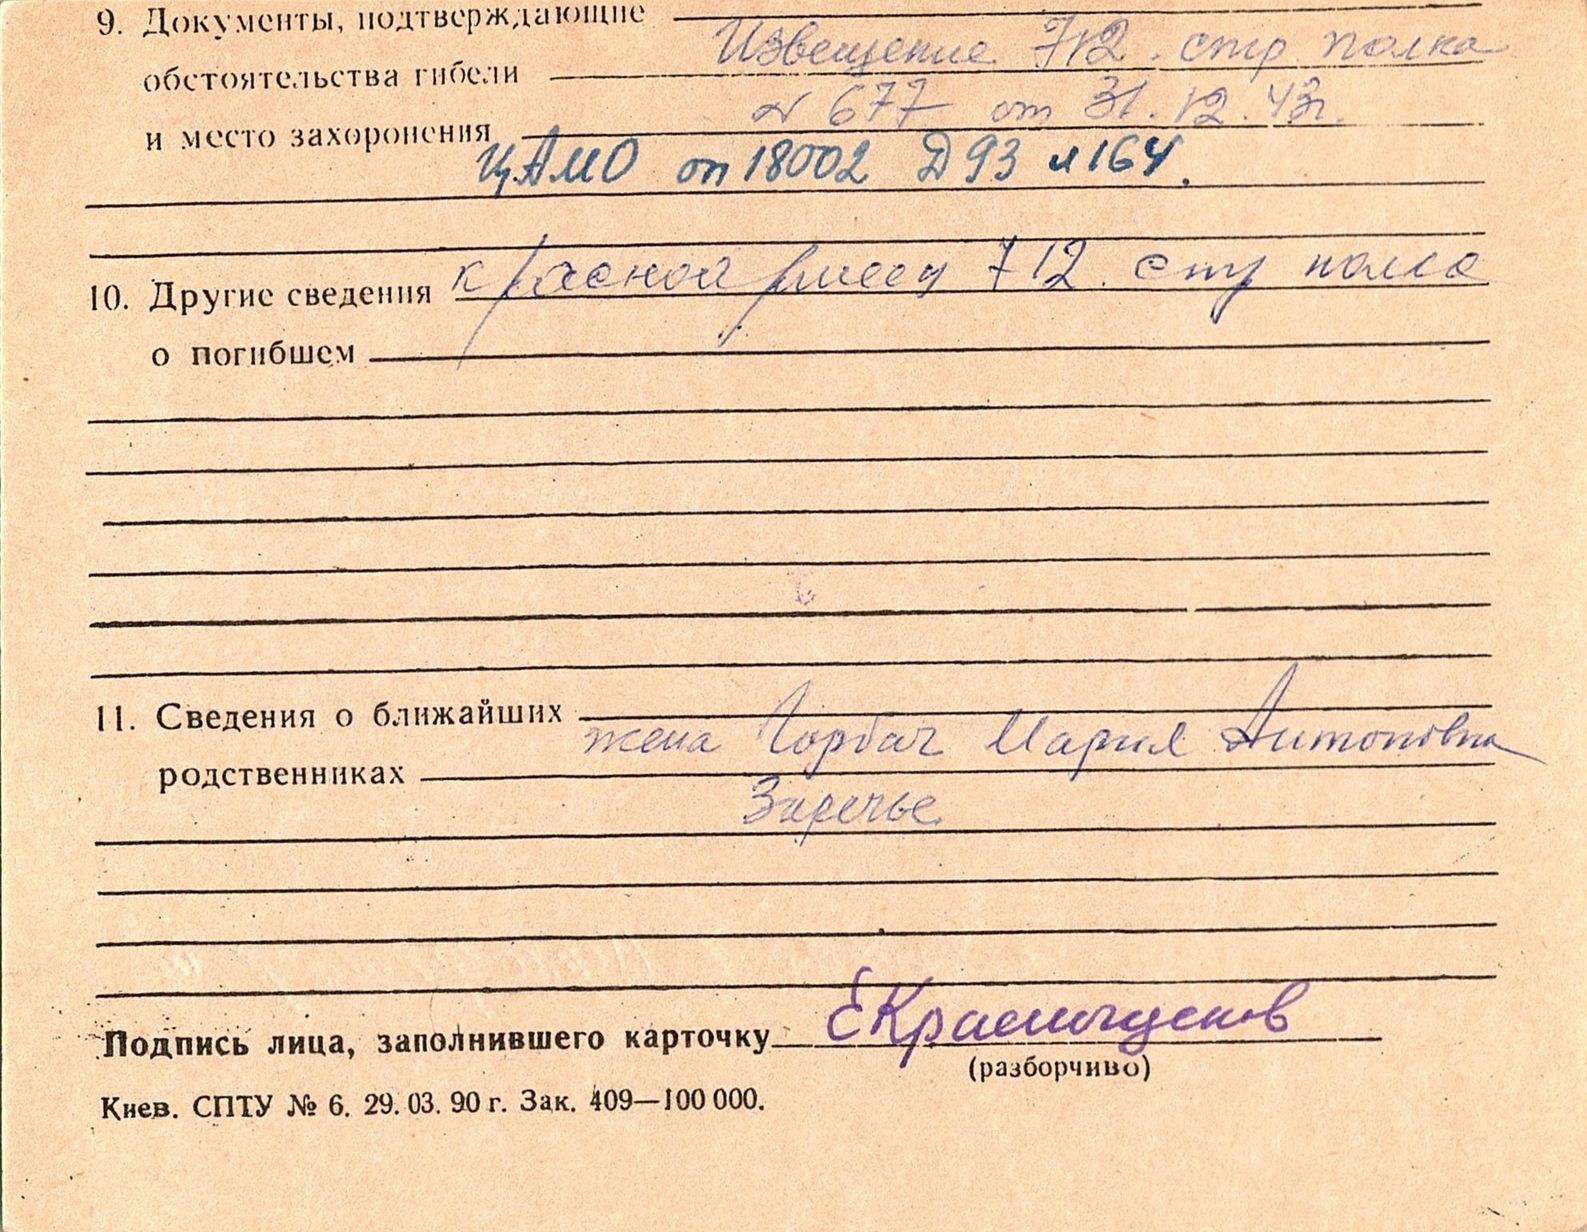 9. Документы, подтверждающие
Извещение 712. стр полка
обстоятельства гибели
№ 677 от 31.12.43г.
и место захоронения
ЦАМО оп 18002 Д 93 л 164.
10. Другие сведения красноармеец 712. стр полка
о погибшем
11. Сведения о ближайших
жена Горбач Мария Антоновна
родственниках
Заречье
Подпись лица, заполнившего карточку
(разборчиво)
Киев. СПТУ № 6. 29. 03. 90 г. Зак. 409—100 000.